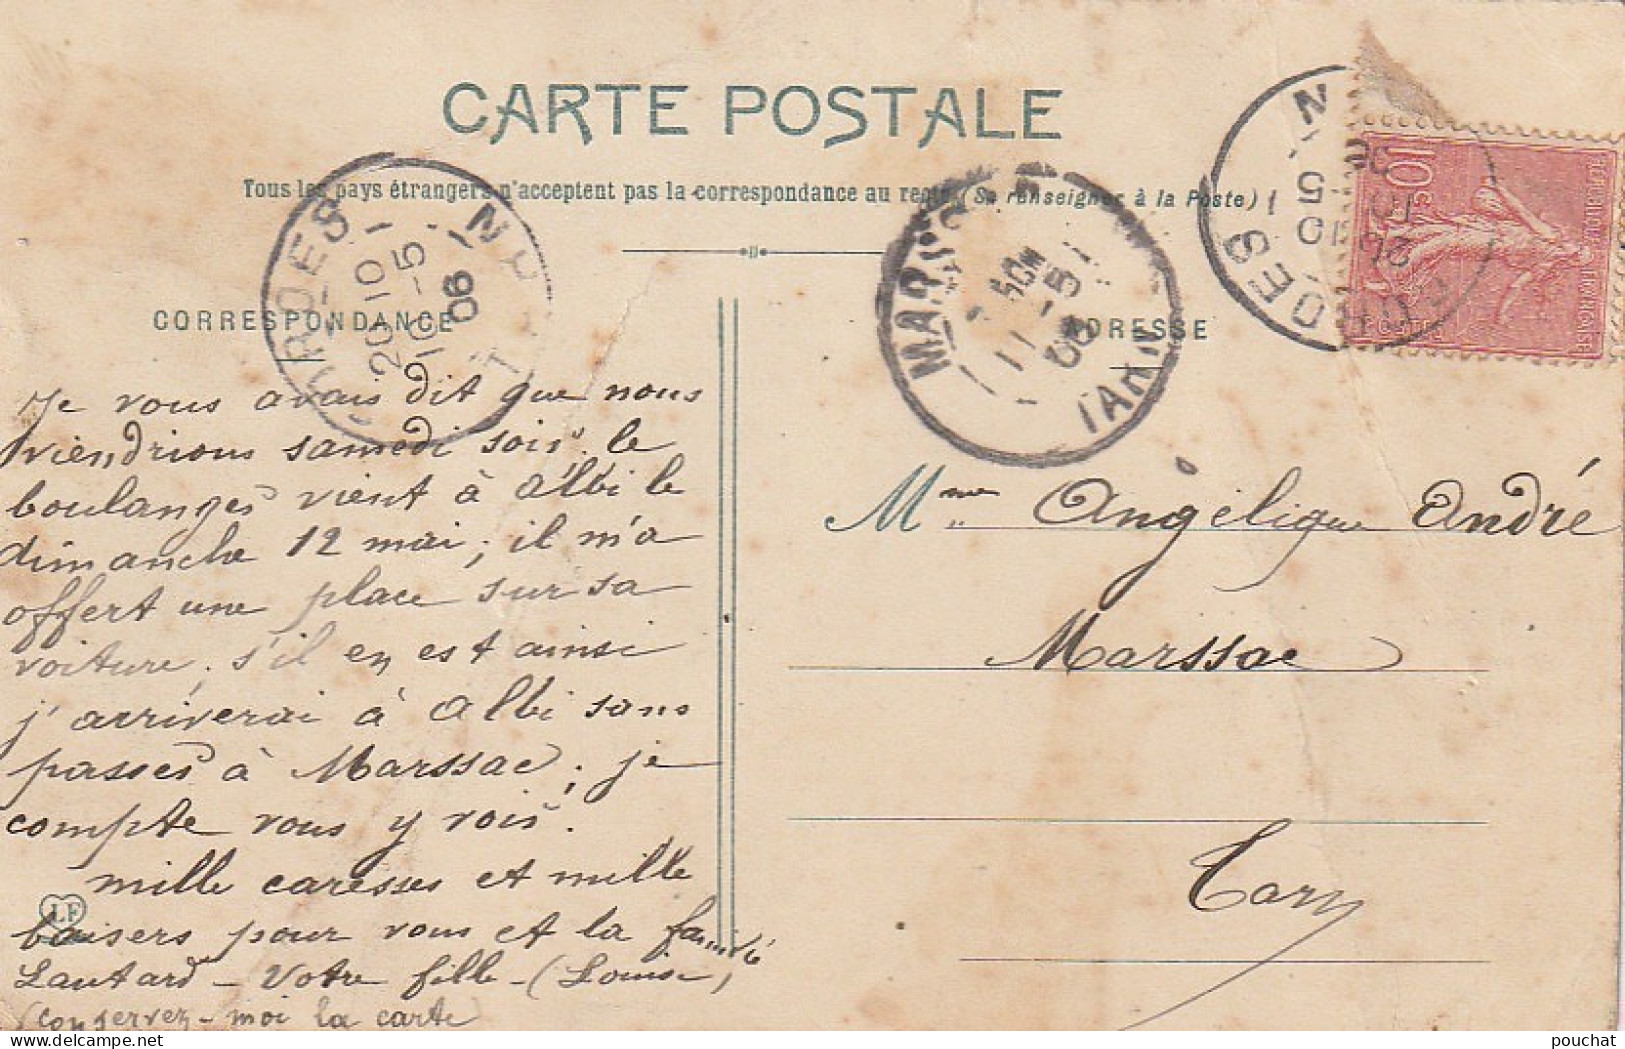 CARTE POSTALE
Tous les pays étrangers n'acceptent pas la correspondance au recto (Se renseigner à la Poste)
CORRESPONDANCE
ADRESSE
20 10
10 - 5
06
11 - 5
06
MARS
TARN
10c
POSTES
Je vous avais dit que nous
viendrions samedi soir. le
boulanger vient à Albi le
dimanche 12 mai; il m'a
offert une place sur sa
voiture; s'il en est ainsi
j'arriverai à Albi sans
passer à Marssac; je
compte vous y voir.
mille caresses et mille
baisers pour vous et la famille
Lautard - Votre fille - (Louise)
(conservez-moi la carte)
LF
Mme Angèlique André
Marssac
Tarn
pouchat